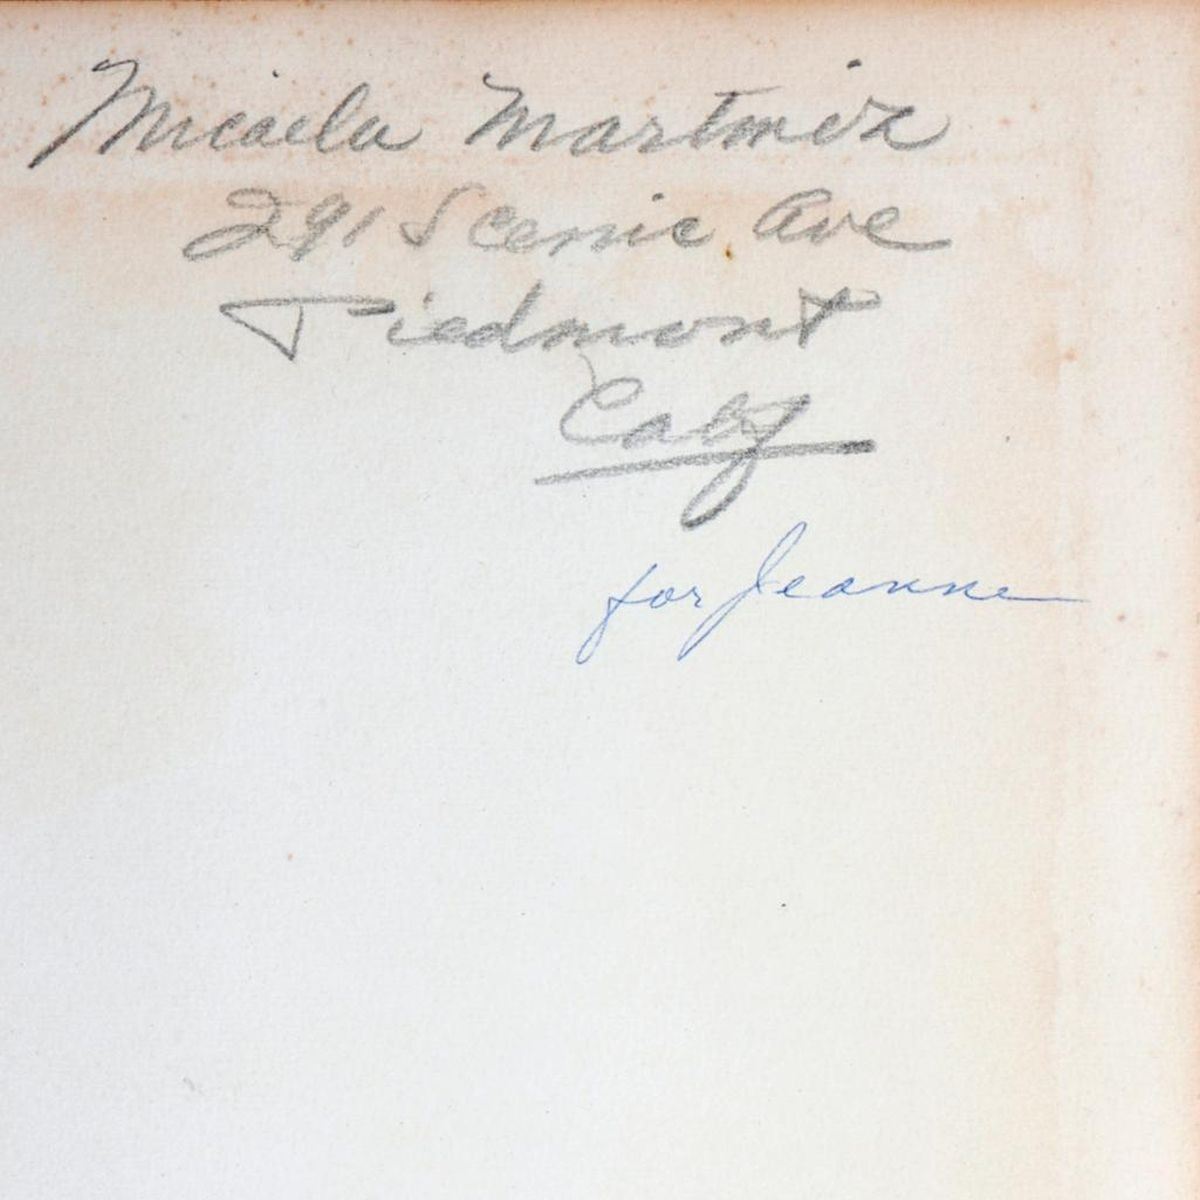 Micaela Martinez
291 Scenic Ave
Piedmont
Calif
for Jeanne